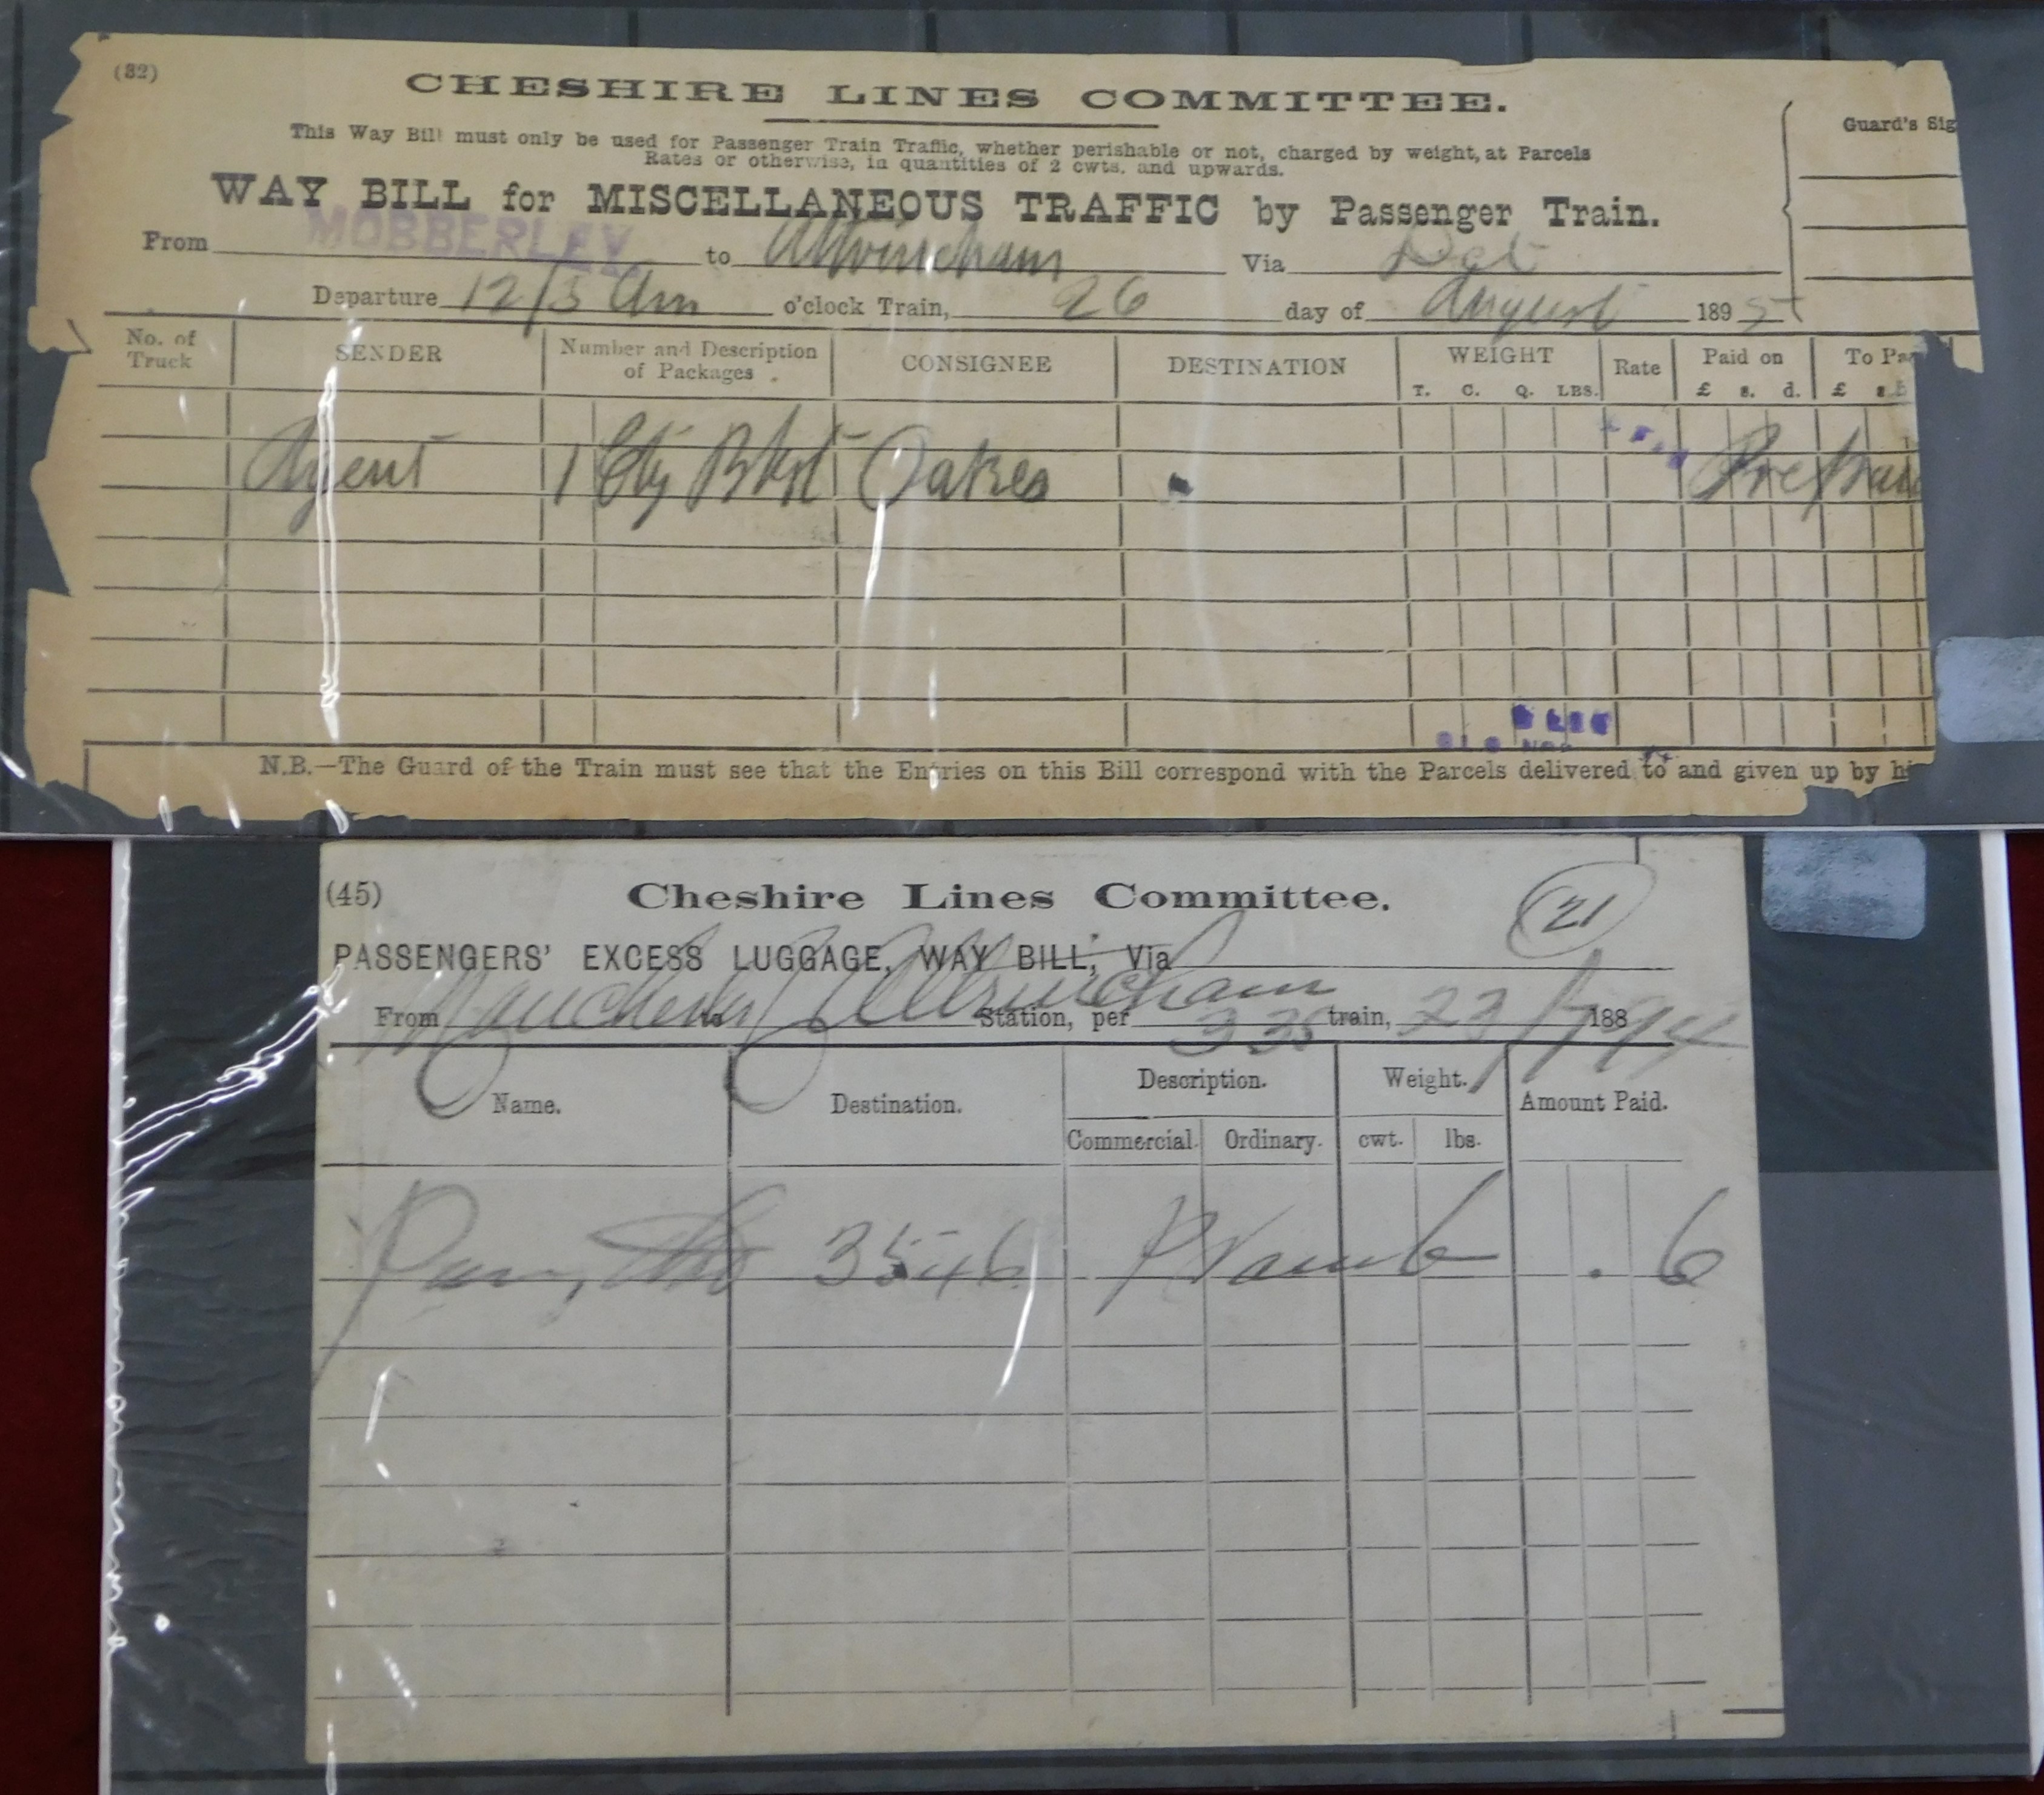 (32)
CHESHIRE LINES COMMITTEE.
Guard's Sig
This Way Bill must only be used for Passenger Train Traffic, whether perishable or not, charged by weight, at Parcels
Rates or otherwise, in quantities of 2 cwts. and upwards.
WAY BILL for MISCELLANEOUS TRAFFIC by Passenger Train.
From MOBBERLEY to Altrincham Via
Departure 12/5 am o'clock Train, 26 day of August 1895
No. of Truck SENDER Number and Description of Packages CONSIGNEE DESTINATION WEIGHT Rate Paid on To Pa
T. C. Q. LBS. £ s. d. £ s.
Agent 1 Oakes
N.B.—The Guard of the Train must see that the Entries on this Bill correspond with the Parcels delivered to and given up by hi
(45) Cheshire Lines Committee. 21
PASSENGERS' EXCESS LUGGAGE, WAY BILL, Via
From Manchester to Altrincham Station, per 335 train, 23/7 188 94
Name. Destination. Description. Weight. Amount Paid.
Commercial. Ordinary. cwt. lbs.
3546 . 6